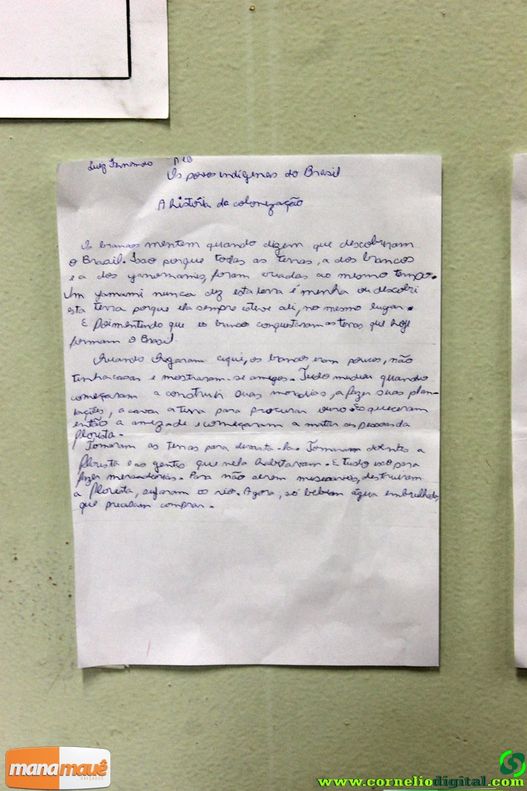 Luiz Fernando nº 18
Os povos indígenas do Brasil
A história da colonização
Os brancos mentem quando dizem que descobriram
o Brasil. Isso porque todas as terras, a dos brancos
e a dos yanomamis, foram criadas ao mesmo tempo.
Um yamami nunca diz esta terra é minha ou descobri
esta terra porque ela sempre esteve ali, no mesmo lugar.
E foi mentindo que os brancos conquistaram as terras que hoje
formam o Brasil.
Quando chegaram aqui, os brancos eram poucos, não
tinha casas e mostraram-se amigos. Tudo mudou quando
começaram a construir suas moradias, a fazer suas plan-
tações, a cavar a terra para procurar ouro. esqueceram
então a amizade e começaram a matar as pessoas da
floresta.
Tomaram as terras para devasta-la. Tomaram doentes a
floresta e as gentes que nela habitavam. E tudo isso para
fazer mercadorias. Para não serem destruiram
a floresta, sujaram os rios. Agora, só bebem água embrulhada,
que precisam comprar.
manamauê
www.corneliodigital.com